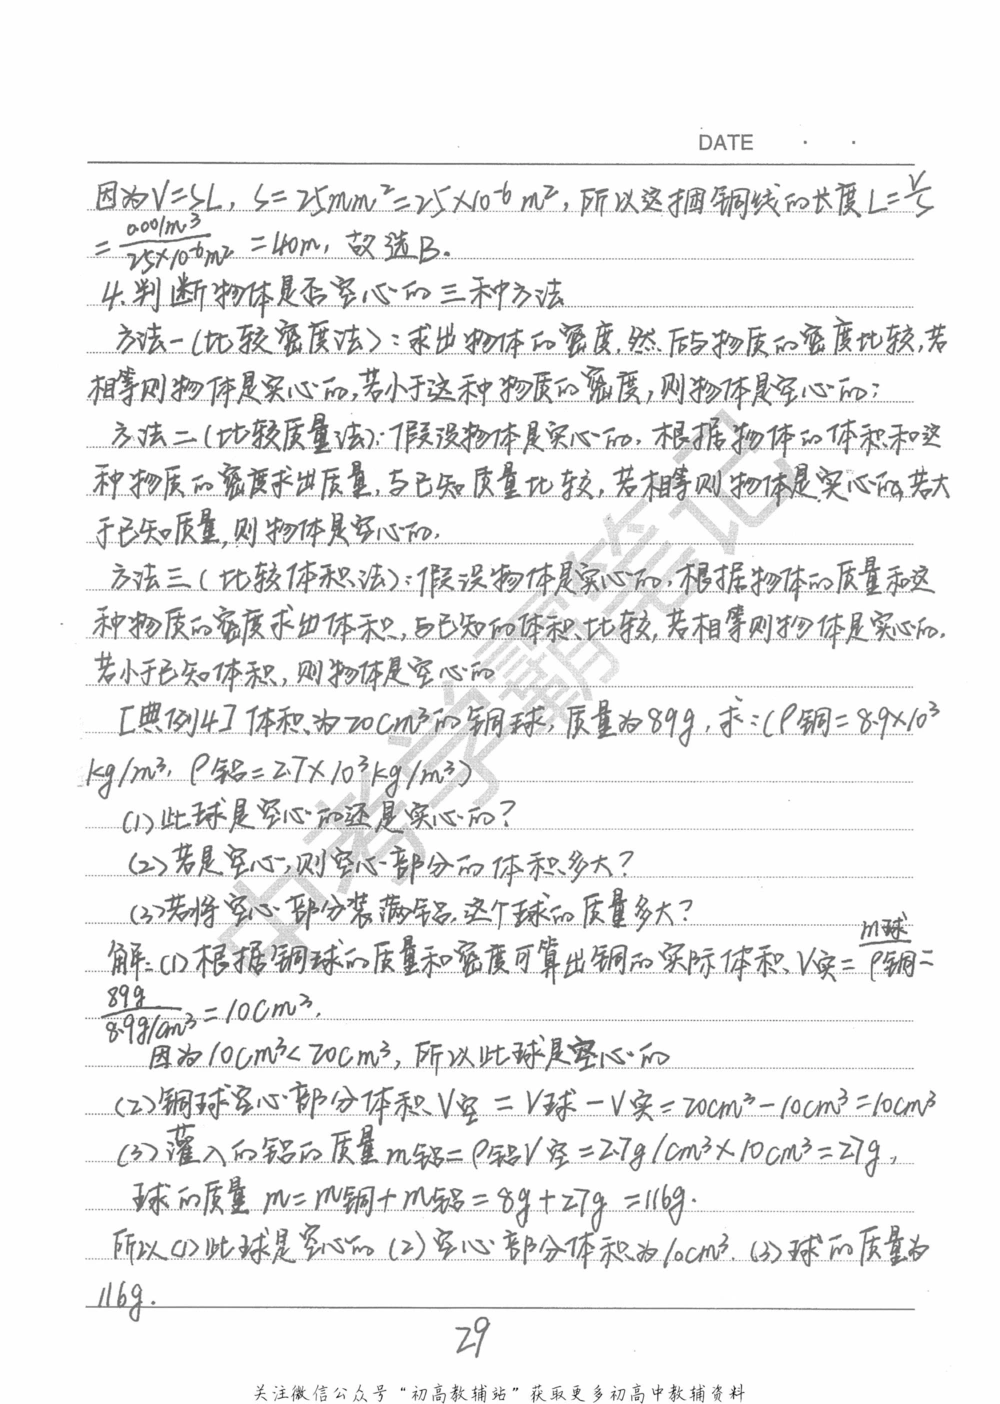 DATE · ·
因为V=SL, S=25mm²=25×10⁻⁶m², 所以这捆铜线的长度L=V/S
=0.001m³/25×10⁻⁶m²=40m, 故选B.
4.判断物体是否空心的三种方法
方法一(比较密度法): 求出物体的密度,然后与物质的密度比较,若
相等则物体是实心的,若小于这种物质的密度,则物体是空心的;
方法二(比较质量法): 假设物体是实心的, 根据物体的体积和这
种物质的密度求出质量,与已知质量比较,若相等则物体是实心的,若大
于已知质量,则物体是空心的.
方法三(比较体积法): 假设物体是实心的, 根据物体的质量和这
种物质的密度求出体积,与已知的体积比较,若相等则物体是实心的,
若小于已知体积,则物体是空心的
[典例4]体积为20cm³的铜球,质量为89g,求:(ρ铜=8.9×10³
kg/m³, ρ铝=2.7×10³kg/m³)
(1)此球是空心的还是实心的?
(2)若是空心,则空心部分的体积多大?
(3)若将空心部分装满铝,这个球的质量多大?
解:(1)根据铜球的质量和密度可算出铜的实际体积,V实=m球/ρ铜=
89g/8.9g/cm³=10cm³.
因为10cm³<20cm³,所以此球是空心的
(2)铜球空心部分体积V空=V球-V实=20cm³-10cm³=10cm³
(3)灌入的铝的质量m铝=ρ铝V空=2.7g/cm³×10cm³=27g,
球的质量 m=m铜+m铝=8g+27g=116g.
所以(1)此球是空心的(2)空心部分体积为10cm³.(3)球的质量为
116g.
29
关注微信公众号“初高教辅站”获取更多初高中教辅资料
中考学霸笔记